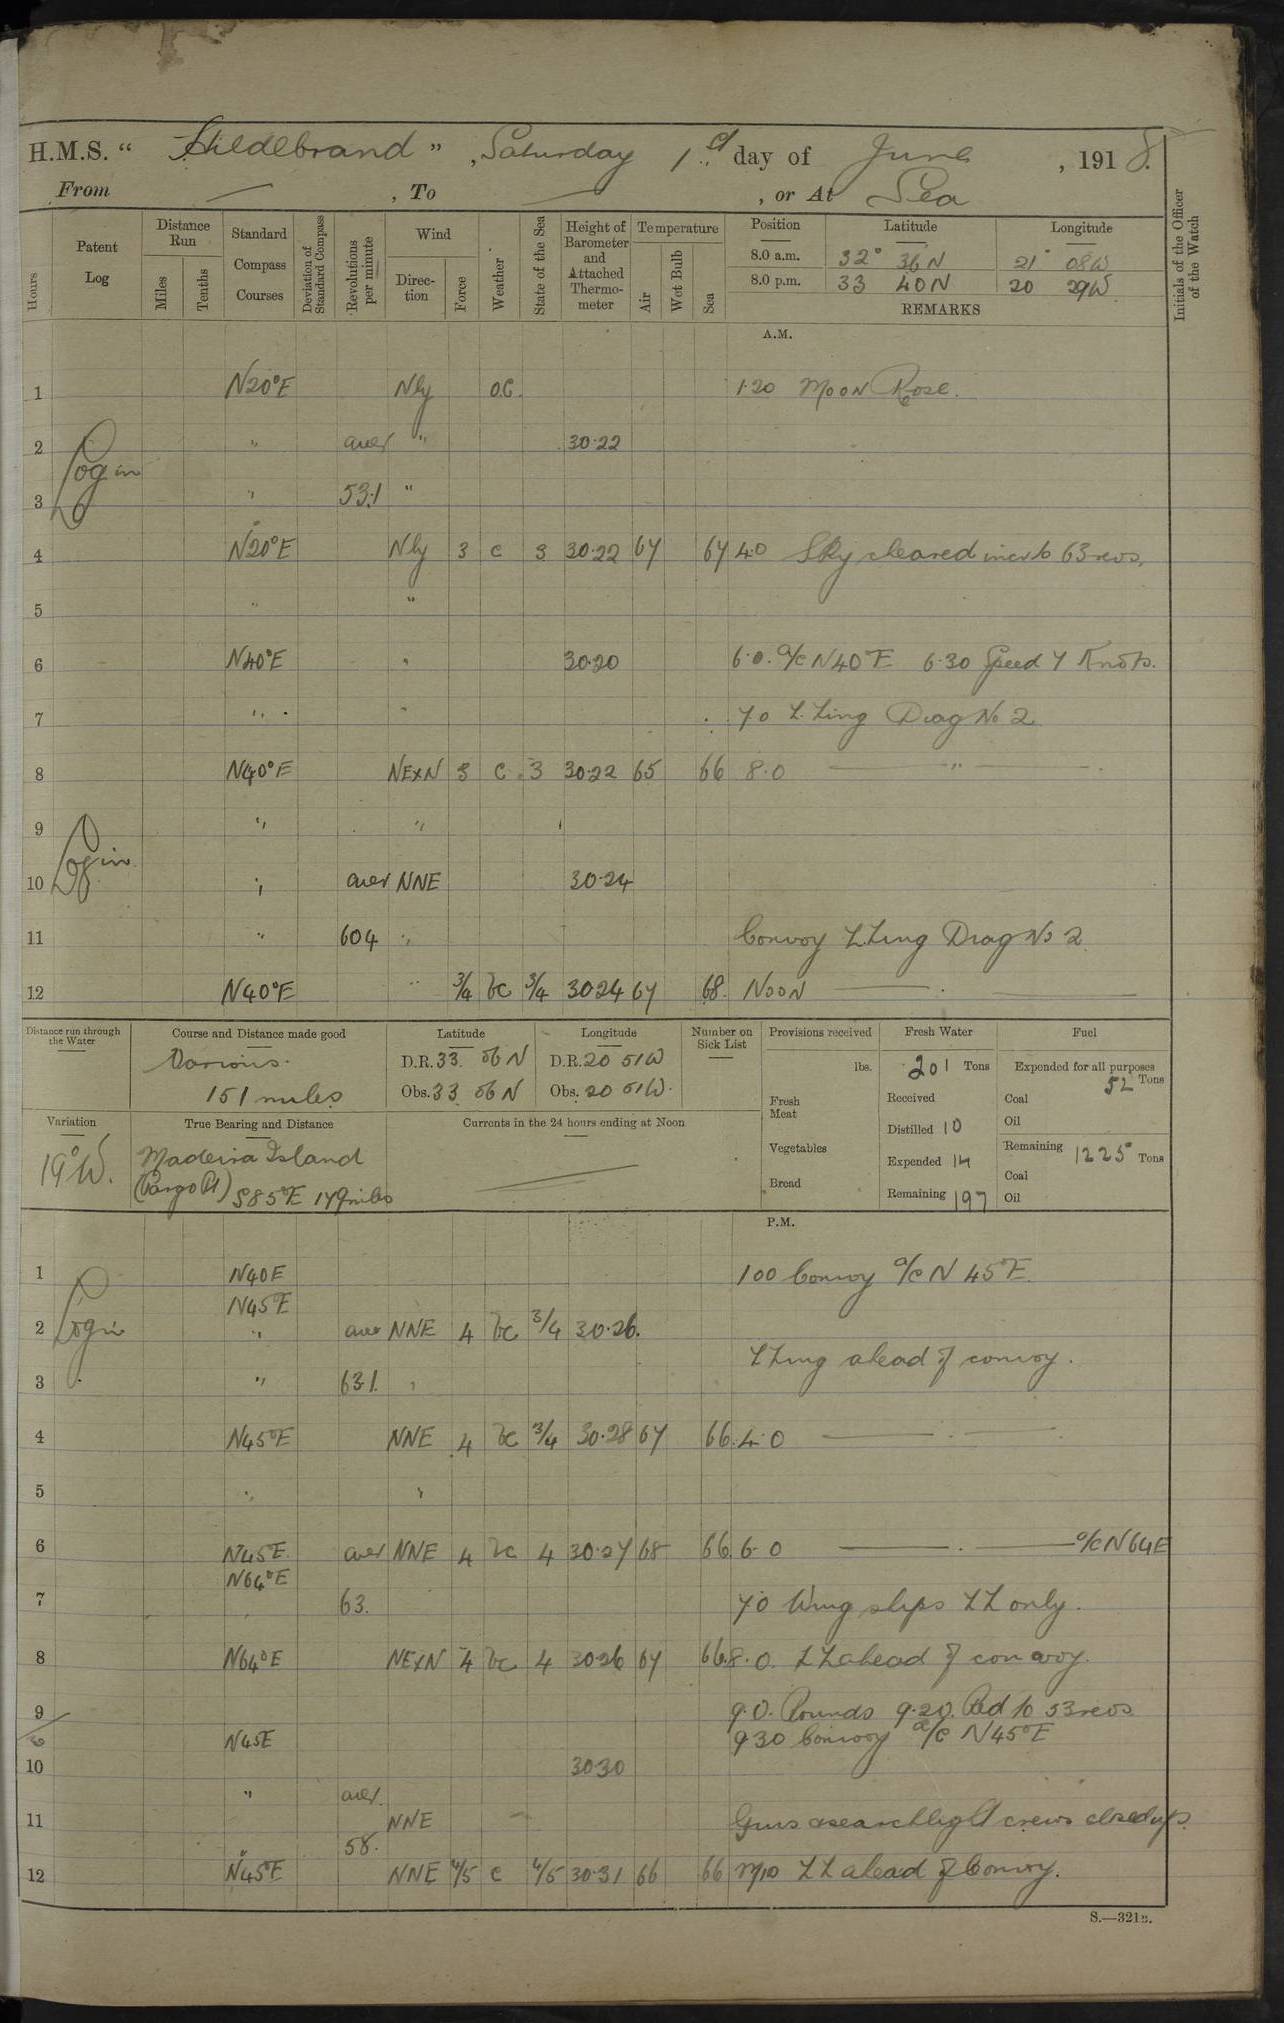 H.M.S. “ Hildebrand ” , Saturday 1st day of June , 1918.
From — , To — , or At Sea
Hours
Patent Log
Distance Run
Miles
Tenths
Standard Compass Courses
Deviation of Standard Compass
Revolutions per minute
Wind
Direction
Force
Weather
State of the Sea
Height of Barometer and Attached Thermometer
Temperature
Air
Wet Bulb
Sea
Position Latitude Longitude
8.0 a.m. 32° 36 N 21° 08 W
8.0 p.m. 33 40 N 20 29 W
REMARKS
Initials of the Officer of the Watch
A.M.
1 N20°E Nly O.C. 1.20 Moon Rose.
2 " aver " 30.22
Log in
3 " 53.1 "
4 N20°E Nly 3 c 3 30.22 67 67 4.0 Sky cleared incr to 63 revs.
5 " "
6 N40°E " 30.20 6.0. a/c N40°E 6.30 Speed 7 Knots.
7 " " 7.0 Z. Zing Diag No 2
8 N40°E NExN 3 c 3 30.22 65 66 8.0 — " —
9 " "
Log in
10 " aver NNE 30.24
11 " 604 " Convoy Z.Zing Diag No 2
12 N40°E " 3/4 bc 3/4 30.24 67 68 Noon — . —
Distance run through the Water
Course and Distance made good
Various.
151 miles
Latitude
D.R. 33 06 N
Obs. 33 06 N
Longitude
D.R. 20 51 W
Obs. 20 51 W.
Number on Sick List
Provisions received
lbs.
Fresh Meat
Vegetables
Bread
Fresh Water
201 Tons
Received
Distilled 10
Expended 14
Remaining 197
Fuel
Expended for all purposes
52 Tons
Coal
Oil
Remaining 1225 Tons
Coal
Oil
Variation
19°W.
True Bearing and Distance
Madeira Island
(Pargo Pt) S85°E 179 miles
Currents in the 24 hours ending at Noon
P.M.
1 N40E 1.00 Convoy a/c N 45°E.
N45°E
Log in
2 " aver NNE 4 bc 3/4 30.26.
Z Zing ahead of convoy.
3 " 63.1. "
4 N45°E NNE 4 bc 3/4 30.28 67 66 4.0 — . —
5 " "
6 N45E aver NNE 4 bc 4 30.27 68 66 6.0 — . — a/c N64E
N64°E
7 63. 7.0 Wing ships ZZ only.
8 N64°E NExN 4 bc 4 30.26 67 66 8.0. ZZ ahead of convoy.
9 9.0. Rounds 9.20. Red to 53 revs
N45E 9.30 Convoy a/c N45°E
10 30.30
" aver.
11 NNE Guns & searchlight crews closed up.
58.
12 N45°E NNE 4/5 c 4/5 30.31 66 66 ZZ ahead of Convoy.
S.—321B.